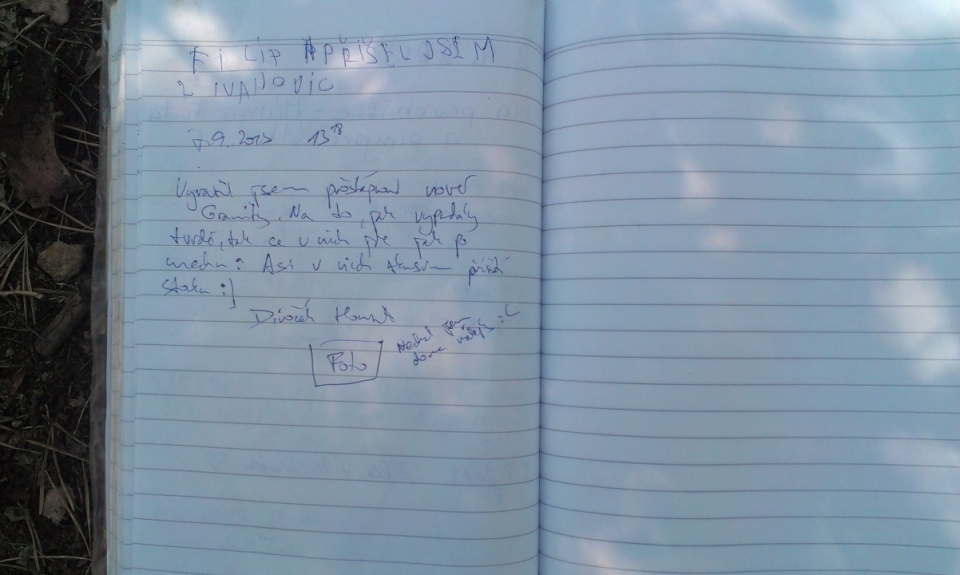 FILIP PŘIŠEL JSEM
Z IVANOVIC
7.9.2013 13 18
Vyrazil jsem prošlápnout nové
Granity. Na to, jak vypadaly
tvrdě, tak se v nich jde jak po
mechu. Asi v nich zkusím příští
stovku :)
Divočák Honza
Foto
Nechal jsem
doma :(